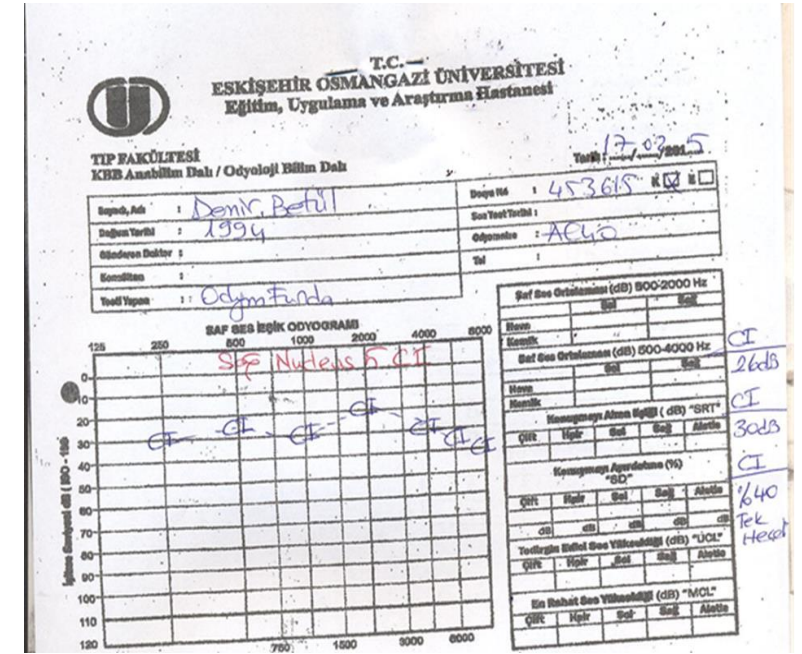 T.C.
ESKİŞEHİR OSMANGAZİ ÜNİVERSİTESİ
Eğitim, Uygulama ve Araştırma Hastanesi
TIP FAKÜLTESİ
KBB Anabilim Dalı / Odyoloji Bilim Dalı
Tarih : 17/03/2015
Soyadı, Adı : Demir, Betül
Doğum Tarihi : 1994
Gönderen Doktor :
Konsültan :
Testi Yapan : Odym Funda
Dosya No : 453615 K E
Son Test Tarihi :
Odyometre : AC40
Tel :
SAF SES EŞİK ODYOGRAMI
125 250 500 1000 2000 4000 8000
Sağ Nucleus 5 CI
0
10
20
30
40
50
60
70
80
90
100
110
120
CI CI CI CI CI CI CI
750 1500 3000 6000
Saf Ses Ortalaması (dB) 500-2000 Hz
Sol Sağ
Hava
Kemik
Saf Ses Ortalaması (dB) 500-4000 Hz
Sol Sağ
Hava
Kemik
CI
26dB
Konuşmayı Alma Eşiği (dB) "SRT"
Çift Hplr Sol Sağ Aletle
CI
30dB
Konuşmayı Ayırdetme (%)
"SD"
Çift Hplr Sol Sağ Aletle
dB dB dB dB dB
CI
%40
Tek
Heceli
Tedirgin Edici Ses Yüksekliği (dB) "UCL"
Çift Hplr Sol Sağ Aletle
En Rahat Ses Yüksekliği (dB) "MCL"
Çift Hplr Sol Sağ Aletle